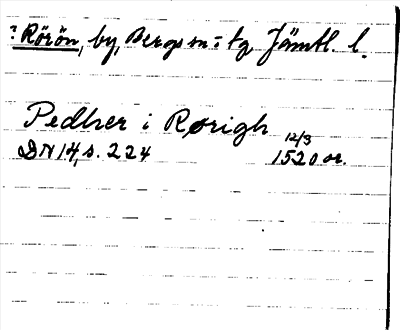 ? Rörön, by, Bergs sn: tg Jämtl. l.
Pedher i Rørigh
DN 14, s. 224 12/3 1520 or.